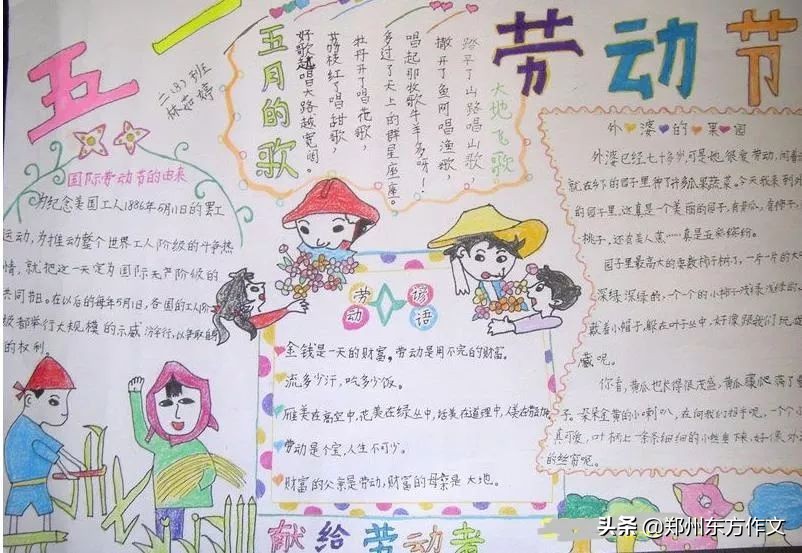 五一
劳动节
二(3)班
林茹婷
五月的歌
大地飞歌
踏平了山路唱山歌,
撒开了鱼网唱渔歌,
唱起那牧歌牛羊多呀!
多过了天上的群星座座。
牡丹开了唱花歌,
荔枝红了唱甜歌,
好歌越唱大路越宽阔。
国际劳动节的由来
为纪念美国工人1886年5月1日的罢工
运动,为推动整个世界工人阶级的斗争热
情,就把这一天定为国际无产阶级的
共同节日。在以后的每年5月1日,各国的工人阶
级都举行大规模的示威游行,以争取自
的权利。
劳动谚语
金钱是一天的财富。劳动是用不完的财富。
流多少汗,吃多少饭。
雁美在高空中,花美在绿丛中,话美在道理中,人美在
劳动是个宝,人生不可少。
财富的父亲是劳动,财富的母亲是大地。
献给劳动者
外婆的果园
外婆已经七十多岁,可是她很爱劳动,闲着
就在乡下的园子里种了许多瓜果蔬菜。今天我来到外
的园子里,这真是一个美丽的园子,有黄瓜,有柿子,
桃子,还有美人蕉……真是五彩缤纷。
园子里最高大的要数柿子树了,一片一片的大叶
深绿深绿的,一个个的小柿子浅绿浅绿的
戴着小帽子,躲在叶子丛中,好像跟我们玩
藏呢。
你看,黄瓜也长得很茂盛,黄瓜藤爬满了
子。朵朵金黄的小喇叭,在向我们招手呢,一个个
真可爱,叶柄上一条条细细的小丝垂下来,好像
的丝窗呢。
头条 @郑州东方作文